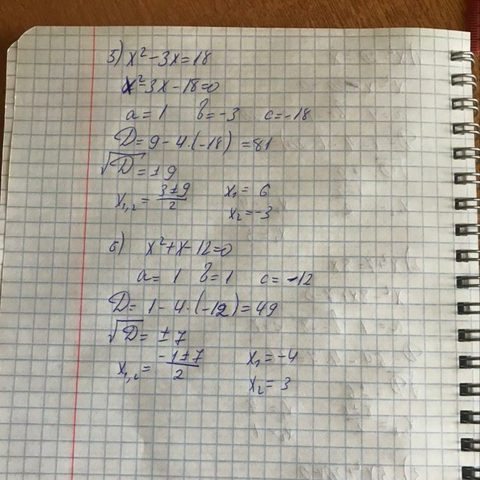 5) x² - 3x = 18
x² - 3x - 18 = 0
a = 1 b = -3 c = -18
D = 9 - 4·(-18) = 81
√D = ±9
x₁,₂ = (3±9)/2 x₁ = 6
x₂ = -3
6) x² + x - 12 = 0
a = 1 b = 1 c = -12
D = 1 - 4·(-12) = 49
√D = ±7
x₁,₂ = (-1±7)/2 x₁ = -4
x₂ = 3